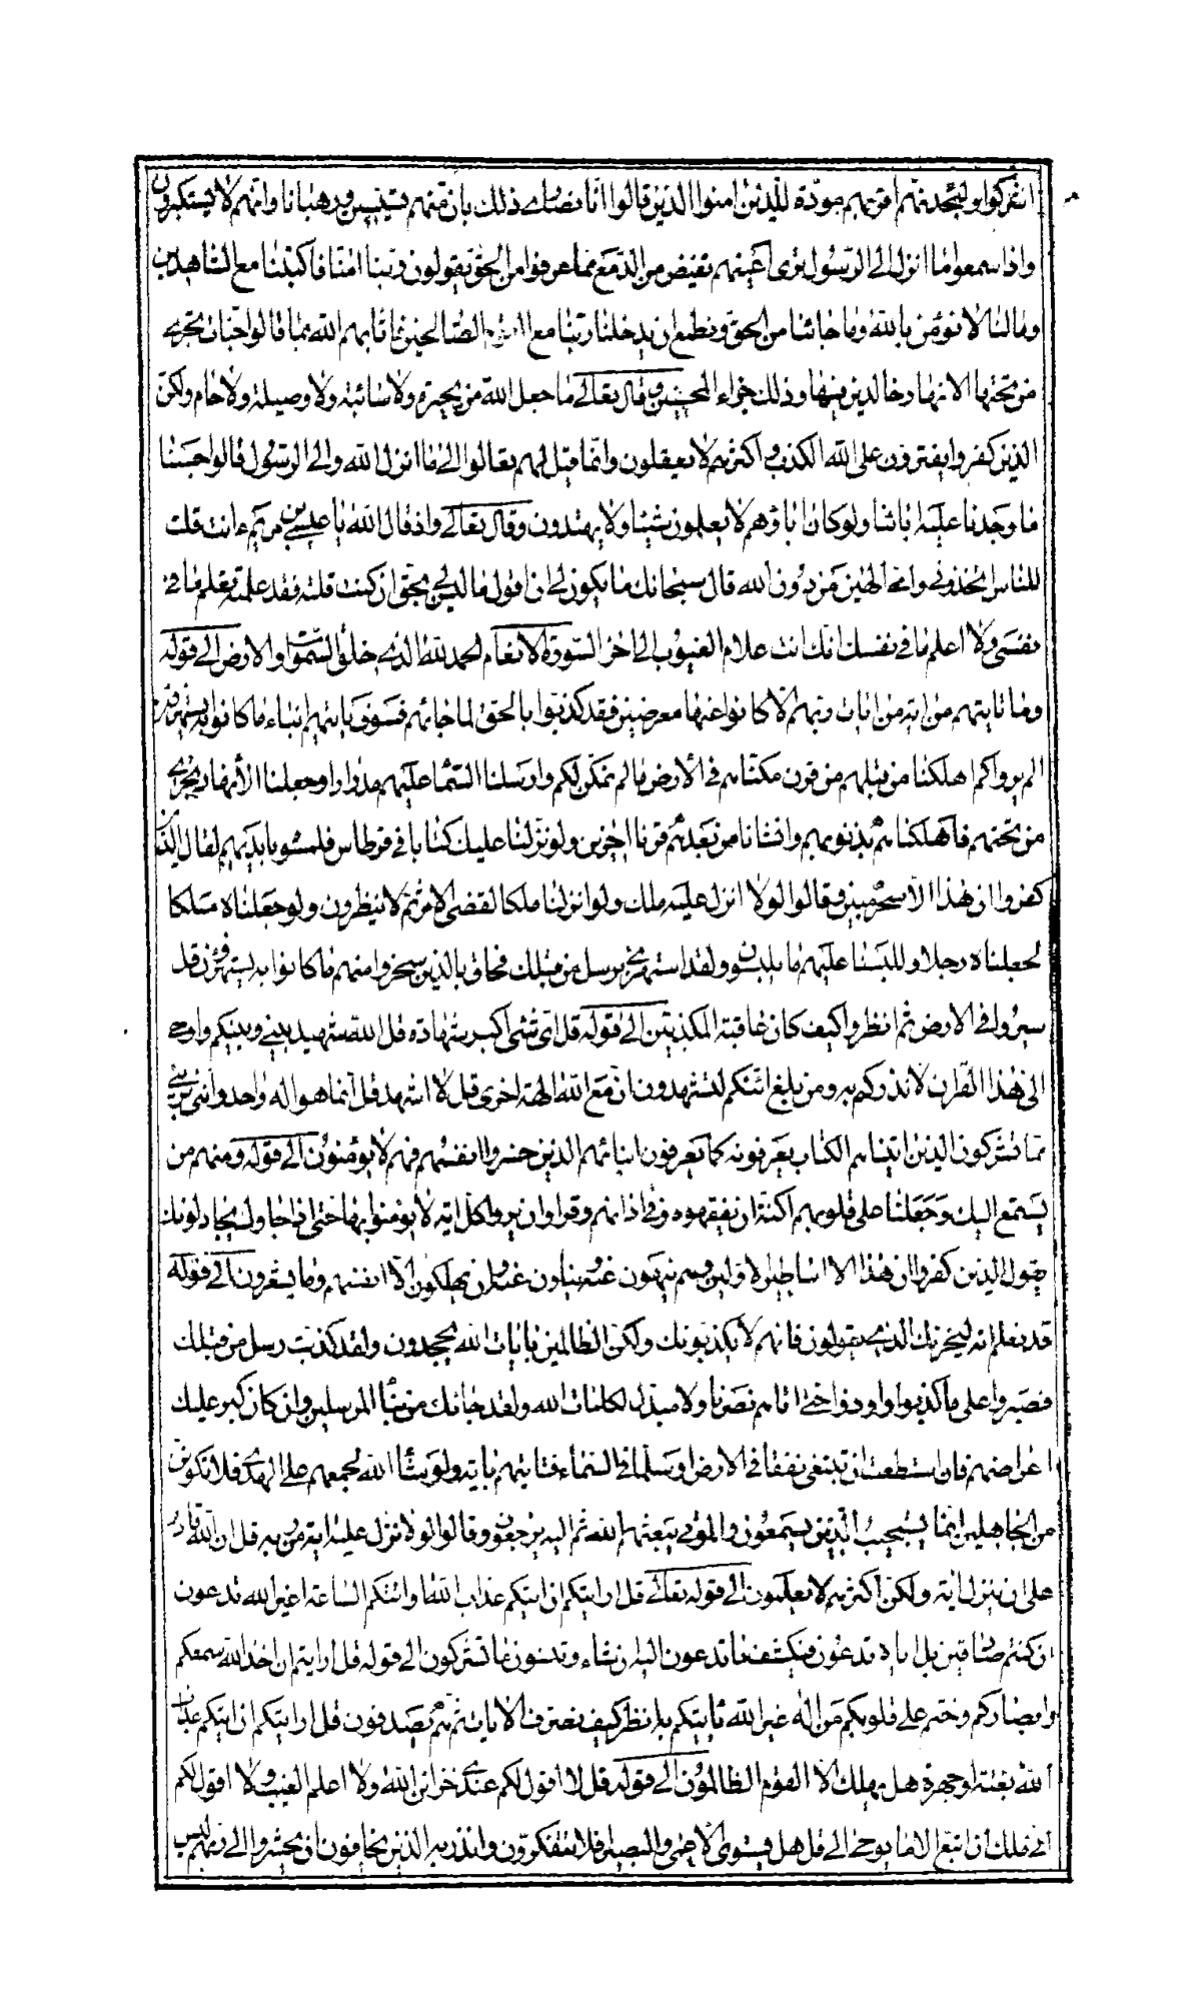 اشركوا ولتجدنهم اقربهم مودة للذين امنوا الذين قالوا انا نصارى ذلك بان منهم قسيسين ورهبانا وانهم لا يستكبرون
واذا سمعوا ما انزل الى الرسول ترى اعينهم تفيض من الدمع مما عرفوا من الحق يقولون ربنا امنا فاكتبنا مع الشاهدين
وما لنا لا نؤمن بالله وما جائنا من الحق ونطمع ان يدخلنا ربنا مع القوم الصالحين فاثابهم الله بما قالوا جنات تجري
من تحتها الانهار خالدين فيها وذلك جزاء المحسنين وقال تعالى ما جعل الله من بحيرة ولا سائبة ولا وصيلة ولا حام ولكن
الذين كفروا يفترون على الله الكذب واكثرهم لا يعقلون واذا قيل لهم تعالوا الى ما انزل الله والى الرسول قالوا حسبنا
ما وجدنا عليه ابائنا ولو كان اباؤهم لا يعلمون شيئا ولا يهتدون وقال تعالى واذ قال الله يا عيسى بن مريم ءانت قلت
للناس اتخذوني وامي الهين من دون الله قال سبحانك ما يكون لي ان اقول ما ليس لي بحق ان كنت قلته فقد علمته تعلم ما في
نفسي ولا اعلم ما في نفسك انك انت علام الغيوب الى اخر السورة الانعام الحمد لله الذي خلق السموات والارض الى قوله
وما تاتيهم من اية من ايات ربهم الا كانوا عنها معرضين فقد كذبوا بالحق لما جائهم فسوف ياتيهم انباء ما كانوا به يستهزؤن
الم يروا كم اهلكنا من قبلهم من قرن مكناهم في الارض ما لم نمكن لكم وارسلنا السماء عليهم مدرارا وجعلنا الانهار تجري
من تحتهم فاهلكناهم بذنوبهم وانشانا من بعدهم قرنا اخرين ولو نزلنا عليك كتابا في قرطاس فلمسوه بايديهم لقال الذين
كفروا ان هذا الا سحر مبين وقالوا لولا انزل عليه ملك ولو انزلنا ملكا لقضي الامر ثم لا ينظرون ولو جعلناه ملكا
لجعلناه رجلا وللبسنا عليهم ما يلبسون ولقد استهزئ برسل من قبلك فحاق بالذين سخروا منهم ما كانوا به يستهزؤن قل
سيروا في الارض ثم انظروا كيف كان عاقبة المكذبين الى قوله قل اي شئ اكبر شهادة قل الله شهيد بيني وبينكم واوحي
الى هذا القران لانذركم به ومن بلغ ائنكم لتشهدون ان مع الله الهة اخرى قل لا اشهد قل انما هو اله واحد وانني برئ
مما تشركون الذين اتيناهم الكتاب يعرفونه كما يعرفون ابنائهم الذين خسروا انفسهم فهم لا يؤمنون الى قوله ومنهم من
يستمع اليك وجعلنا على قلوبهم اكنة ان يفقهوه وفي اذانهم وقرا وان يروا كل اية لا يؤمنوا بها حتى اذا جاؤك يجادلونك
يقول الذين كفروا ان هذا الا اساطير الاولين وهم ينهون عنه وينأون عنه وان يهلكون الا انفسهم وما يشعرون الى قوله
قد نعلم انه ليحزنك الذي يقولون فانهم لا يكذبونك ولكن الظالمين بايات الله يجحدون ولقد كذبت رسل من قبلك
فصبروا على ما كذبوا واوذوا حتى اتاهم نصرنا ولا مبدل لكلمات الله ولقد جائك من نبأ المرسلين وان كان كبر عليك
اعراضهم فان استطعت ان تبتغي نفقا في الارض او سلما في السماء فتاتيهم باية ولو شاء الله لجمعهم على الهدى فلا تكونن
من الجاهلين انما يستجيب الذين يسمعون والموتى يبعثهم الله ثم اليه يرجعون وقالوا لولا نزل عليه اية من ربه قل ان الله قادر
على ان ينزل اية ولكن اكثرهم لا يعلمون الى قوله تعالى قل ارايتكم ان اتيكم عذاب الله او اتتكم الساعة اغير الله تدعون
ان كنتم صادقين بل اياه تدعون فيكشف ما تدعون اليه ان شاء وتنسون ما تشركون الى قوله قل ارايتم ان اخذ الله سمعكم
وابصاركم وختم على قلوبكم من اله غير الله ياتيكم به انظر كيف نصرف الايات ثم هم يصدفون قل ارايتكم ان اتيكم عذاب
الله بغتة او جهرة هل يهلك الا القوم الظالمون الى قوله قل لا اقول لكم عندي خزائن الله ولا اعلم الغيب ولا اقول لكم
اني ملك ان اتبع الا ما يوحى الي قل هل يستوي الاعمى والبصير افلا تتفكرون وانذر به الذين يخافون ان يحشروا الى ربهم ليس